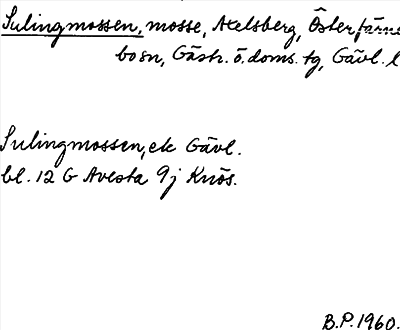 Sulingmossen, mosse, Axelsberg, Österfärne
bo sn, Gästr. ö. doms. tg, Gävl. l
Sulingmossen, ek Gävl.
bl. 12 G Avesta 9j Knös.
B.P. 1960.